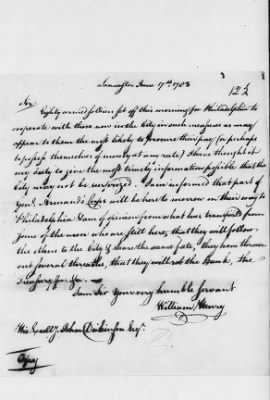 Lancaster June 17th. 1783
123
Sir
Eighty armed soldiers set off this morning for Philadelphia to
cooperate with those now in the City in such measures as may
appear to them the most likely to procure their pay (or perhaps
to possess themselves of money at any rate) I have thought it
my duty to give the most timely information possible that the
City may not be surprized. I am informed that part of
Genl. Armands Corps will be here to morrow on their way to
Philadelphia I am of opinion from what has transpired from
some of the men who are still here, that they will follow
the others to the City & share the same fate, they have thrown
out several threats, that they will rob the Bank, the
Treasury &c. &c.
I am Sir your very humble Servant
William Henry
His Excelly. John Dickinson Esqr.
Copy